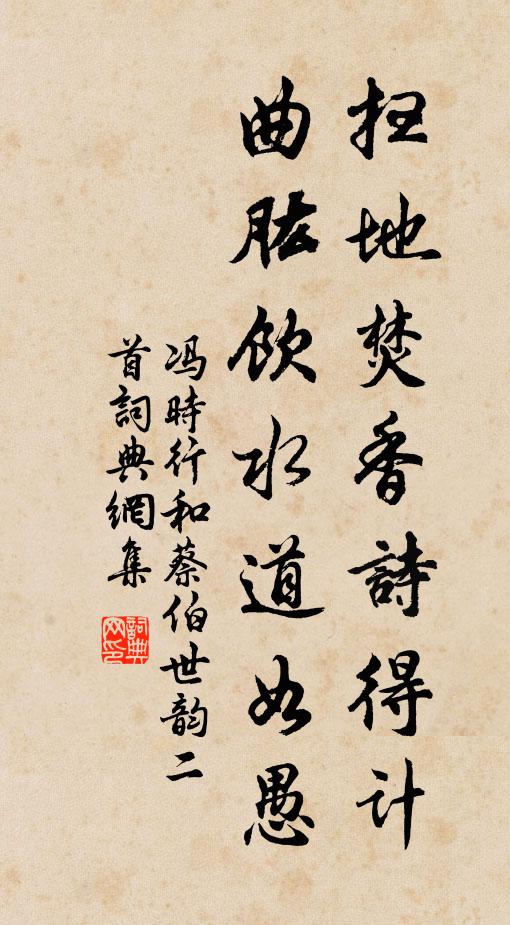 扫地焚香詩得计
曲肱飲水道如愚
冯時行和蔡伯世韵二
首詞典網集
詞典
网印